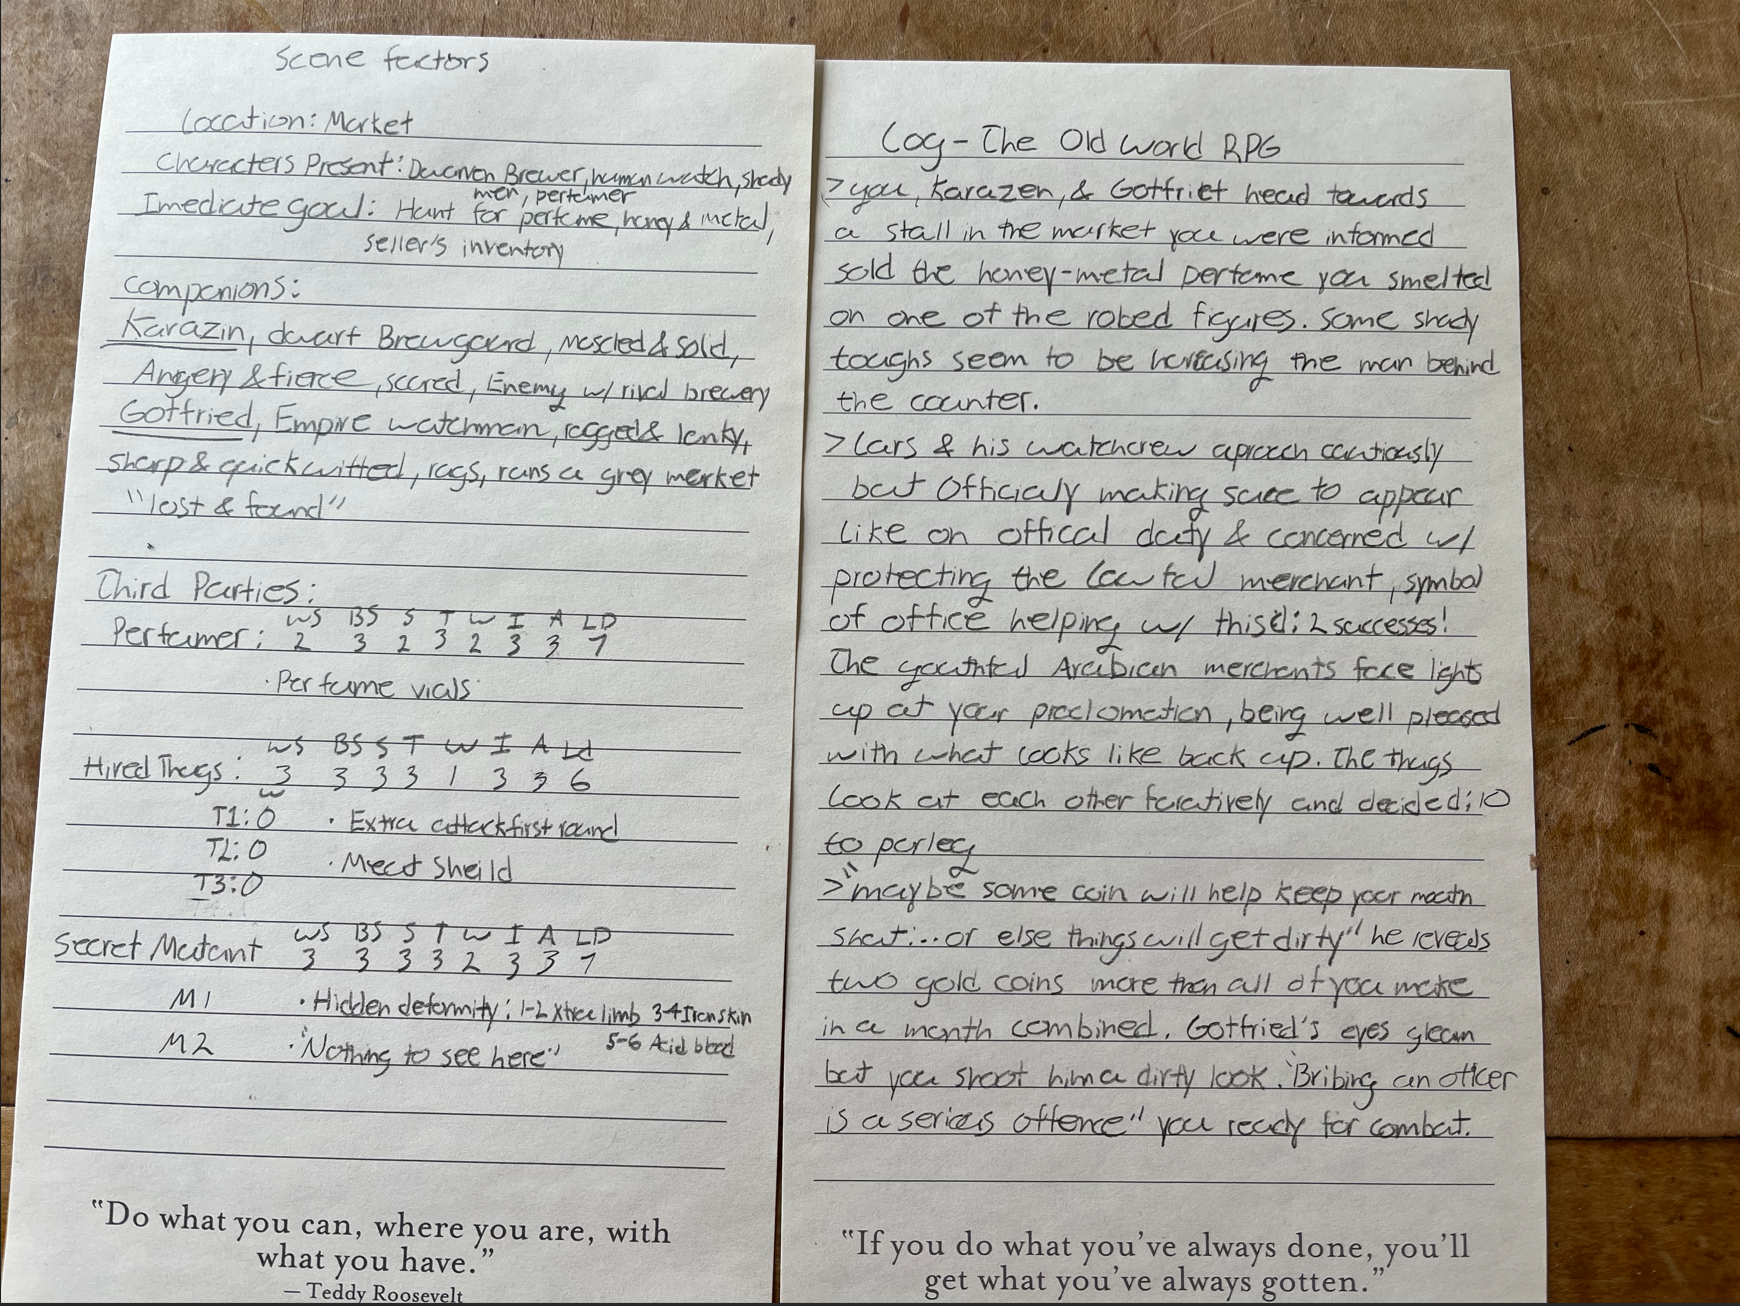 Scene factors
Location: Market
Characters Present: Dwarven Brewer, human watch, shady
men, perfumer
Imediate goal: Hunt for perfume, honey & metal,
seller's inventory
Companions:
Karazin, dwarf Brewguard, muscled & solid,
Angery & fierce, scared, Enemy w/ rival brewery
Gotfried, Empire watchman, ragged & lanky,
sharp & quickwitted, rags, runs a grey market
"lost & found"
Third Parties:
WS BS S T W I A LD
Perfumer: 2 3 2 3 2 3 3 7
· Perfume vials
WS BS S T W I A Ld
Hired Thugs: 3 3 3 3 1 3 3 6
W
T1: 0 · Extra attack first round
T2: 0 · Meat Sheild
T3: 0
WS BS S T W I A LD
Secret Mutant 3 3 3 3 2 3 3 7
M1 · Hidden deformity: 1-2 Xtra limb 3-4 Iron skin
M2 · "Nothing to see here" 5-6 Acid blood
"Do what you can, where you are, with
what you have."
— Teddy Roosevelt
Log - The Old World RPG
> you, Karazen, & Gotfriet head towards
a stall in the market you were informed
sold the honey-metal perfume you smelted
on one of the robed figures. Some shady
toughs seem to be harassing the man behind
the counter.
> Lars & his watchcrew aproach cautiously
but Officialy making sure to appear
like on offical duty & concerned w/
protecting the lawful merchant, symbol
of office helping w/ this: 2 successes!
The youthful Arabian merchants face lights
up at your proclomation, being well pleased
with what looks like back up. The thugs
look at each other furatively and decided: 10
to parley
> "maybe some coin will help keep your mouth
shut... or else things will get dirty" he reveals
two gold coins more than all of you make
in a month combined. Gotfried's eyes gleam
but you shoot him a dirty look. "Bribing an officer
is a serious offence" you ready for combat.
"If you do what you've always done, you'll
get what you've always gotten."